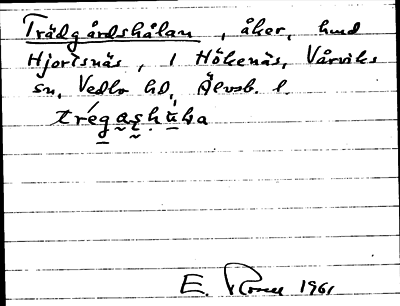 Trädgårdshålan, åker, hmd
Hjortsnäs, 1 Hökenäs, Vårviks
sn, Vedbo hd, Älvsb. l.
E. 1961